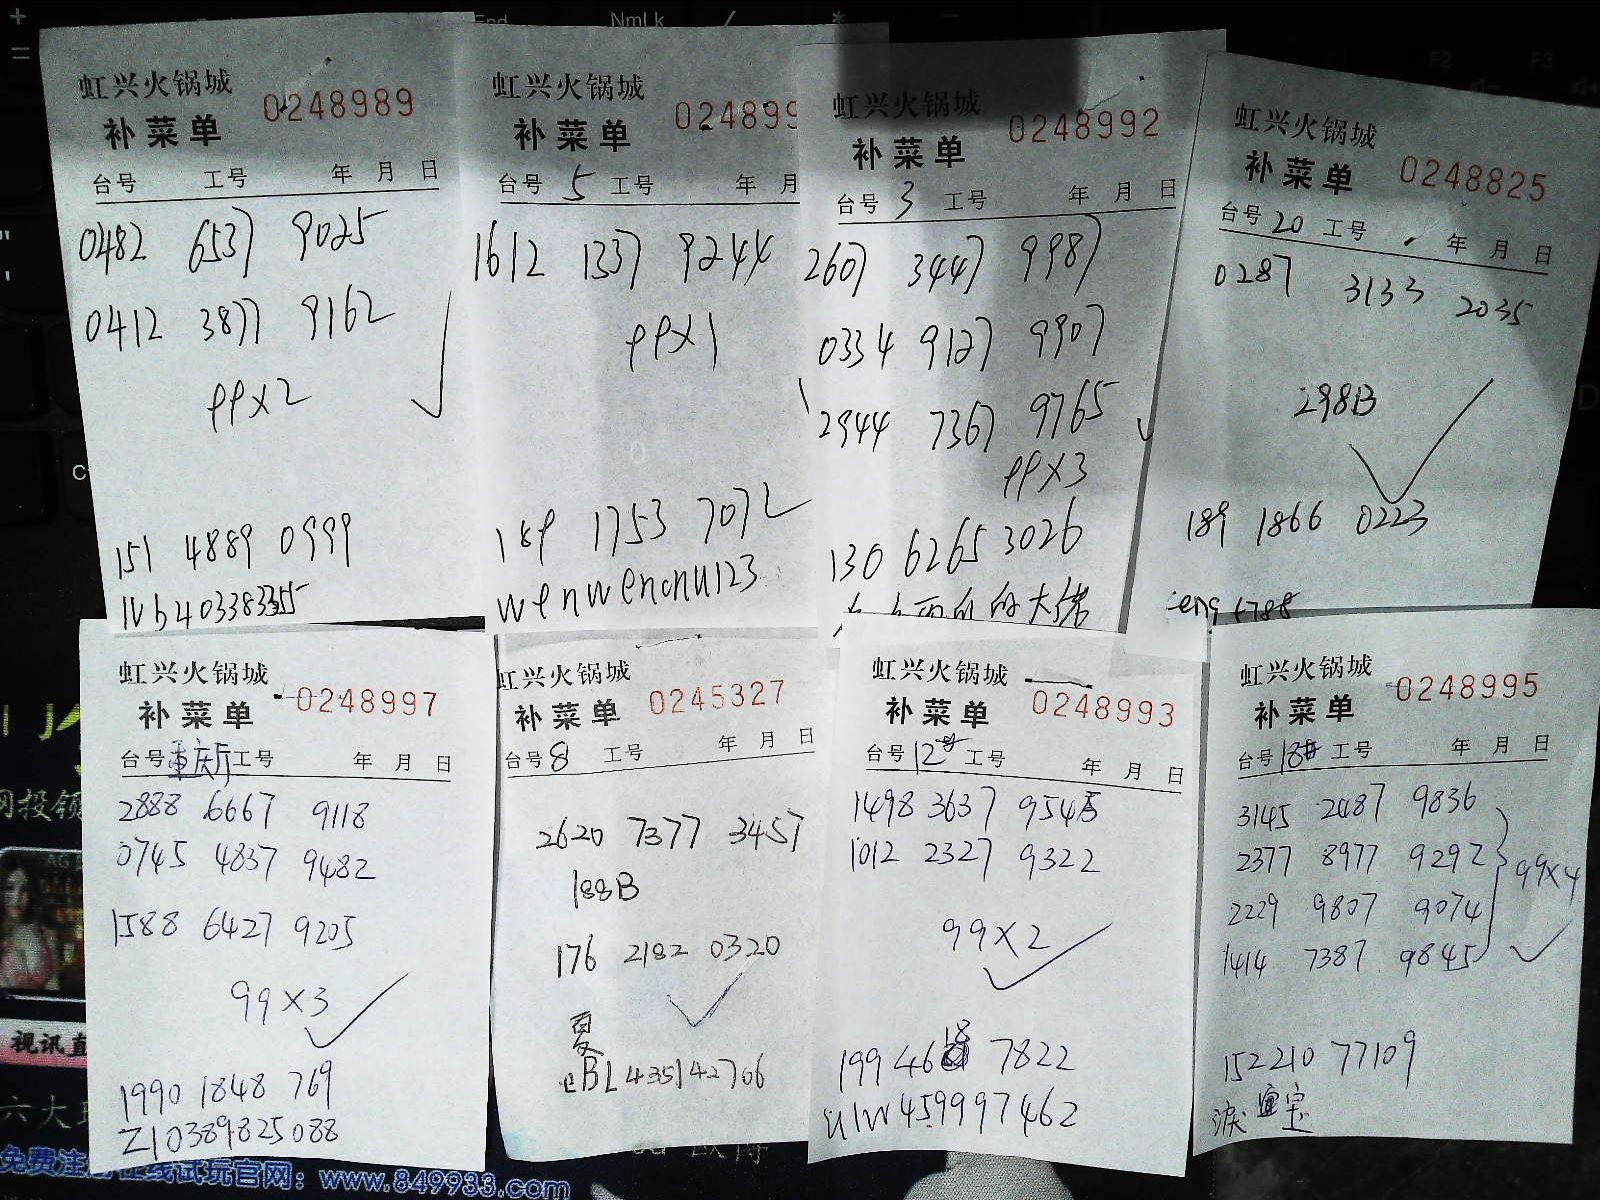 虹兴火锅城
0248989
补菜单
台号 工号 年 月 日
0482 6537 9025
0412 3877 9162
99x2
151 4889 0999
虹兴火锅城
024899
补菜单
台号 5 工号 年 月
1612 1337 9244
99x1
189 1753 7072
wenwencnu123
虹兴火锅城
0248992
补菜单
台号 3 工号 年 月 日
2607 3447 9987
0334 9127 9907
2944 7367 9765
99x3
130 6265 3026
的大佬
虹兴火锅城
0248825
补菜单
台号 20 工号 年 月 日
0287 3133 2035
298B
189 1866 0223
虹兴火锅城
0248997
补菜单
台号 重庆厅 工号 年 月 日
2888 6667 9118
0745 4837 9482
1588 6427 9205
99x3
1990 1848 769
Z10389825088
虹兴火锅城
0245327
补菜单
台号 8 工号 年 月 日
2620 7377 3457
188B
176 2182 0320
夏
BL435142766
虹兴火锅城
0248993
补菜单
台号 12号 工号 年 月 日
1498 3637 9545
1012 2327 9322
99x2
199 4618 7822
UIW459997462
虹兴火锅城
0248995
补菜单
台号 18 工号 年 月 日
3145 2487 9836
2377 8977 9292
2229 9807 9074
1414 7387 9845
99x4
152210 77109
泪 宝
视讯直
六大
免费注册在线试玩官网：www.849933.com
NmLk
End
F2
F3